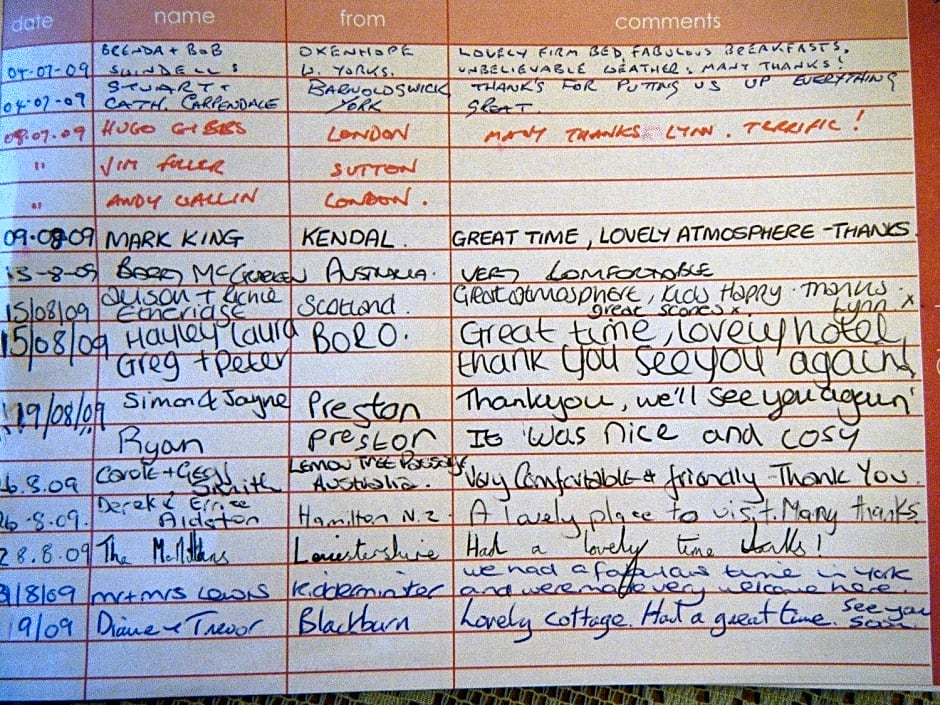 date name from comments
BRENDA + BOB OXENHOPE LOVELY FIRM BED, FABULOUS BREAKFASTS,
04-07-09 SWINDELLS W. YORKS. UNBELIEVABLE WEATHER. MANY THANKS!
STUART + BARNOLDSWICK THANK'S FOR PUTING US UP EVERYTHING
04.07.09 CATH. CARPENDALE YORK GREAT
08.07.09 HUGO GIBBS LONDON MANY THANKS LYNN. TERRIFIC!
" JIM FULLER SUTTON
" ANDY WALLIN LONDON.
09.08.09 MARK KING KENDAL. GREAT TIME, LOVELY ATMOSPHERE - THANKS.
15-8-09 BARRY AUSTRALIA. VERY COMFORTABLE
Alison + Richie Great atmosphere, kids Happy. Thanks
15/08/09 Etheridge Scotland. great scones x. Lynn. x
15/08/09 Hayley Laura BORO. Great time, lovely hotel,
Greg + Peter thank you see you again!
19/08/09 Simon & Jayne Preston Thankyou, we'll see you again
" Ryan Preston It was nice and cosy
Carole + Geoff LEMON TREE PASSAGE
6.8.09 Smith AUSTRALIA. Very Comfortable & friendly - Thank You
Derek & Ernice
26-8.09. Aldston Hamilton N.Z. A lovely place to visit. Many thanks.
28.8.09 The McMillans Leicestershire Had a lovely time thanks!
we had a fabulous time in York
31/8/09 mr + mrs Lewis Kidderminster and were made very welcome here.
19/09 Diane & Trevor Blackburn Lovely cottage. Had a great time. See you
soon.